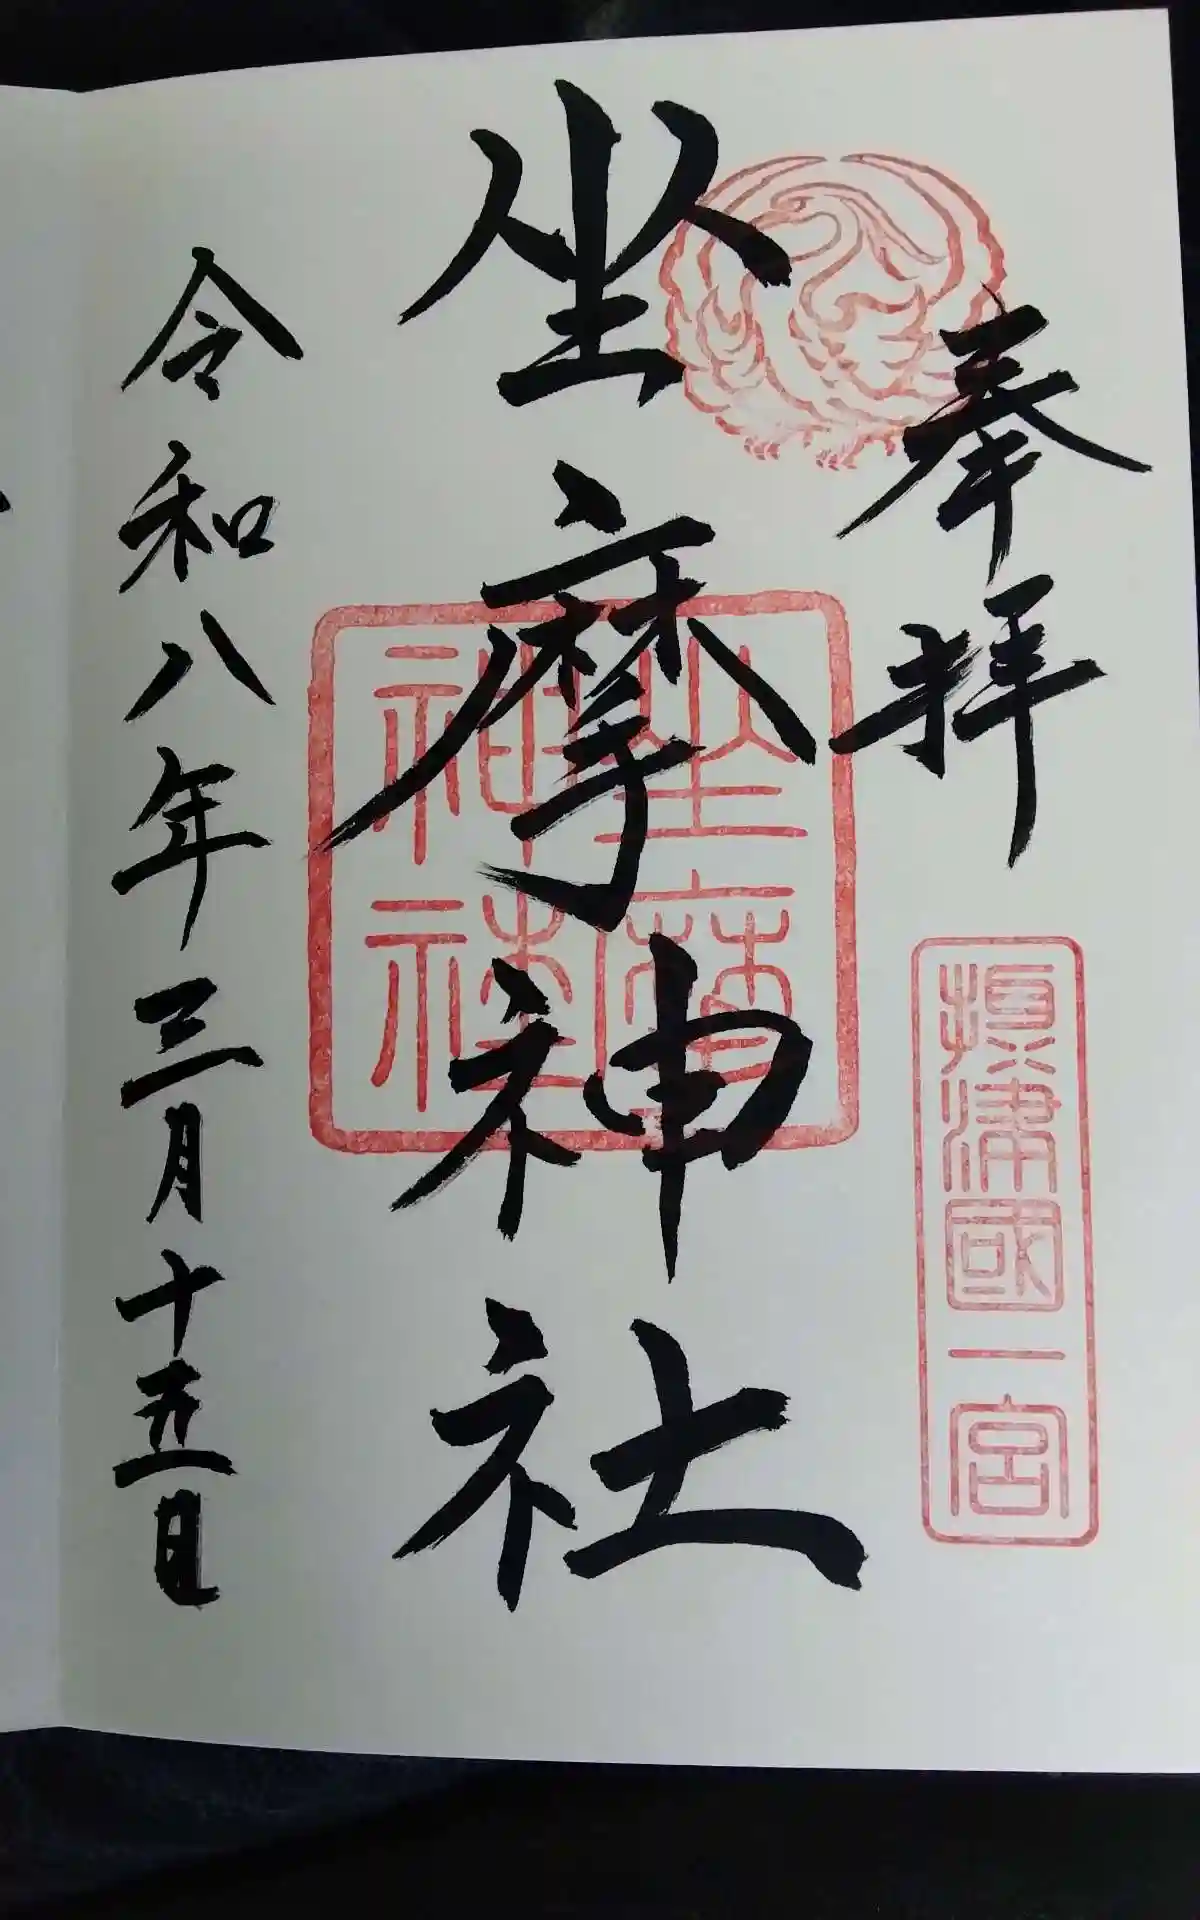 奉拝
摂津國一宮
坐摩神社
坐摩
神社
令和八年三月十五日